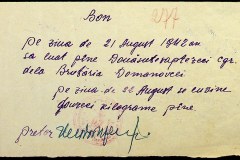 Bon 277
pe ziua de 21 August 1942 am
sa luat pâne Douăzecișaptezeci Cgr.
dela Brutăria Domanovei
pe ziua de 22 August se cuvine
douăzeci kilograme pâne
pretor